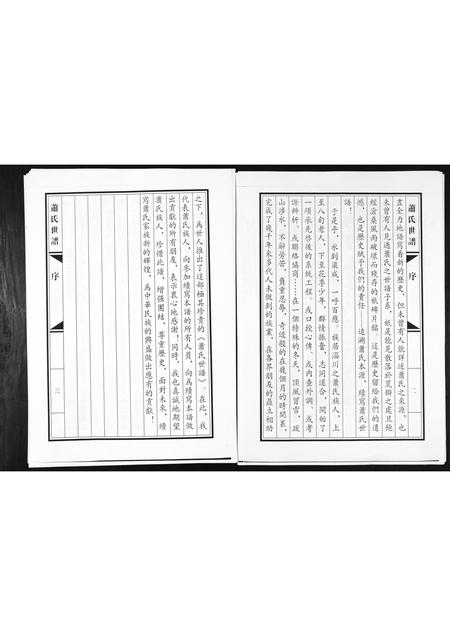 蕭氏世譜
序
二
盡全力地譜寫着新的歷史，但未曾有人能詳述蕭氏之来源，也
未曾有人見過蕭氏之世譜子系，衹是能見散落於荒僻之處且飽
經滄桑風雨破壞而殘存的衹碑片銘。這是歷史留給我們的遺
憾，也是歷史賦予我們的責任——追溯蕭氏本源，續寫蕭氏世
譜！
于是乎，水到渠成，一呼百應。族居淄川之蕭氏族人，上
至八旬老人，下至花季少年，群情振奮，志同道合，開始了
一項承先啓後的系統工程。或口授心傳，或内查外調，或考
證辨析，或聯絡協商……在一個特殊的冬天，頂風冒雪，跋
山涉水，不辭勞苦，負重忍辱，奇迹般的在幾個月的時間裏，
完成了幾千年来多代人未做到的族業，在各界朋友的鼎立相助
之下，爲世人推出了這部極其珍貴的《蕭氏世譜》。在此，我
代表蕭氏族人，向參加續寫本譜的所有人員，向爲續寫本譜做
出貢獻的所有朋友，表示衷心地感謝！同時，我也真誠地期望
蕭氏族人，珍惜此譜，增强團結，尊重歷史，面對未來，續
寫蕭氏家族新的輝煌，爲中華民族的興盛做出應有的貢獻！
蕭氏世譜
序
三